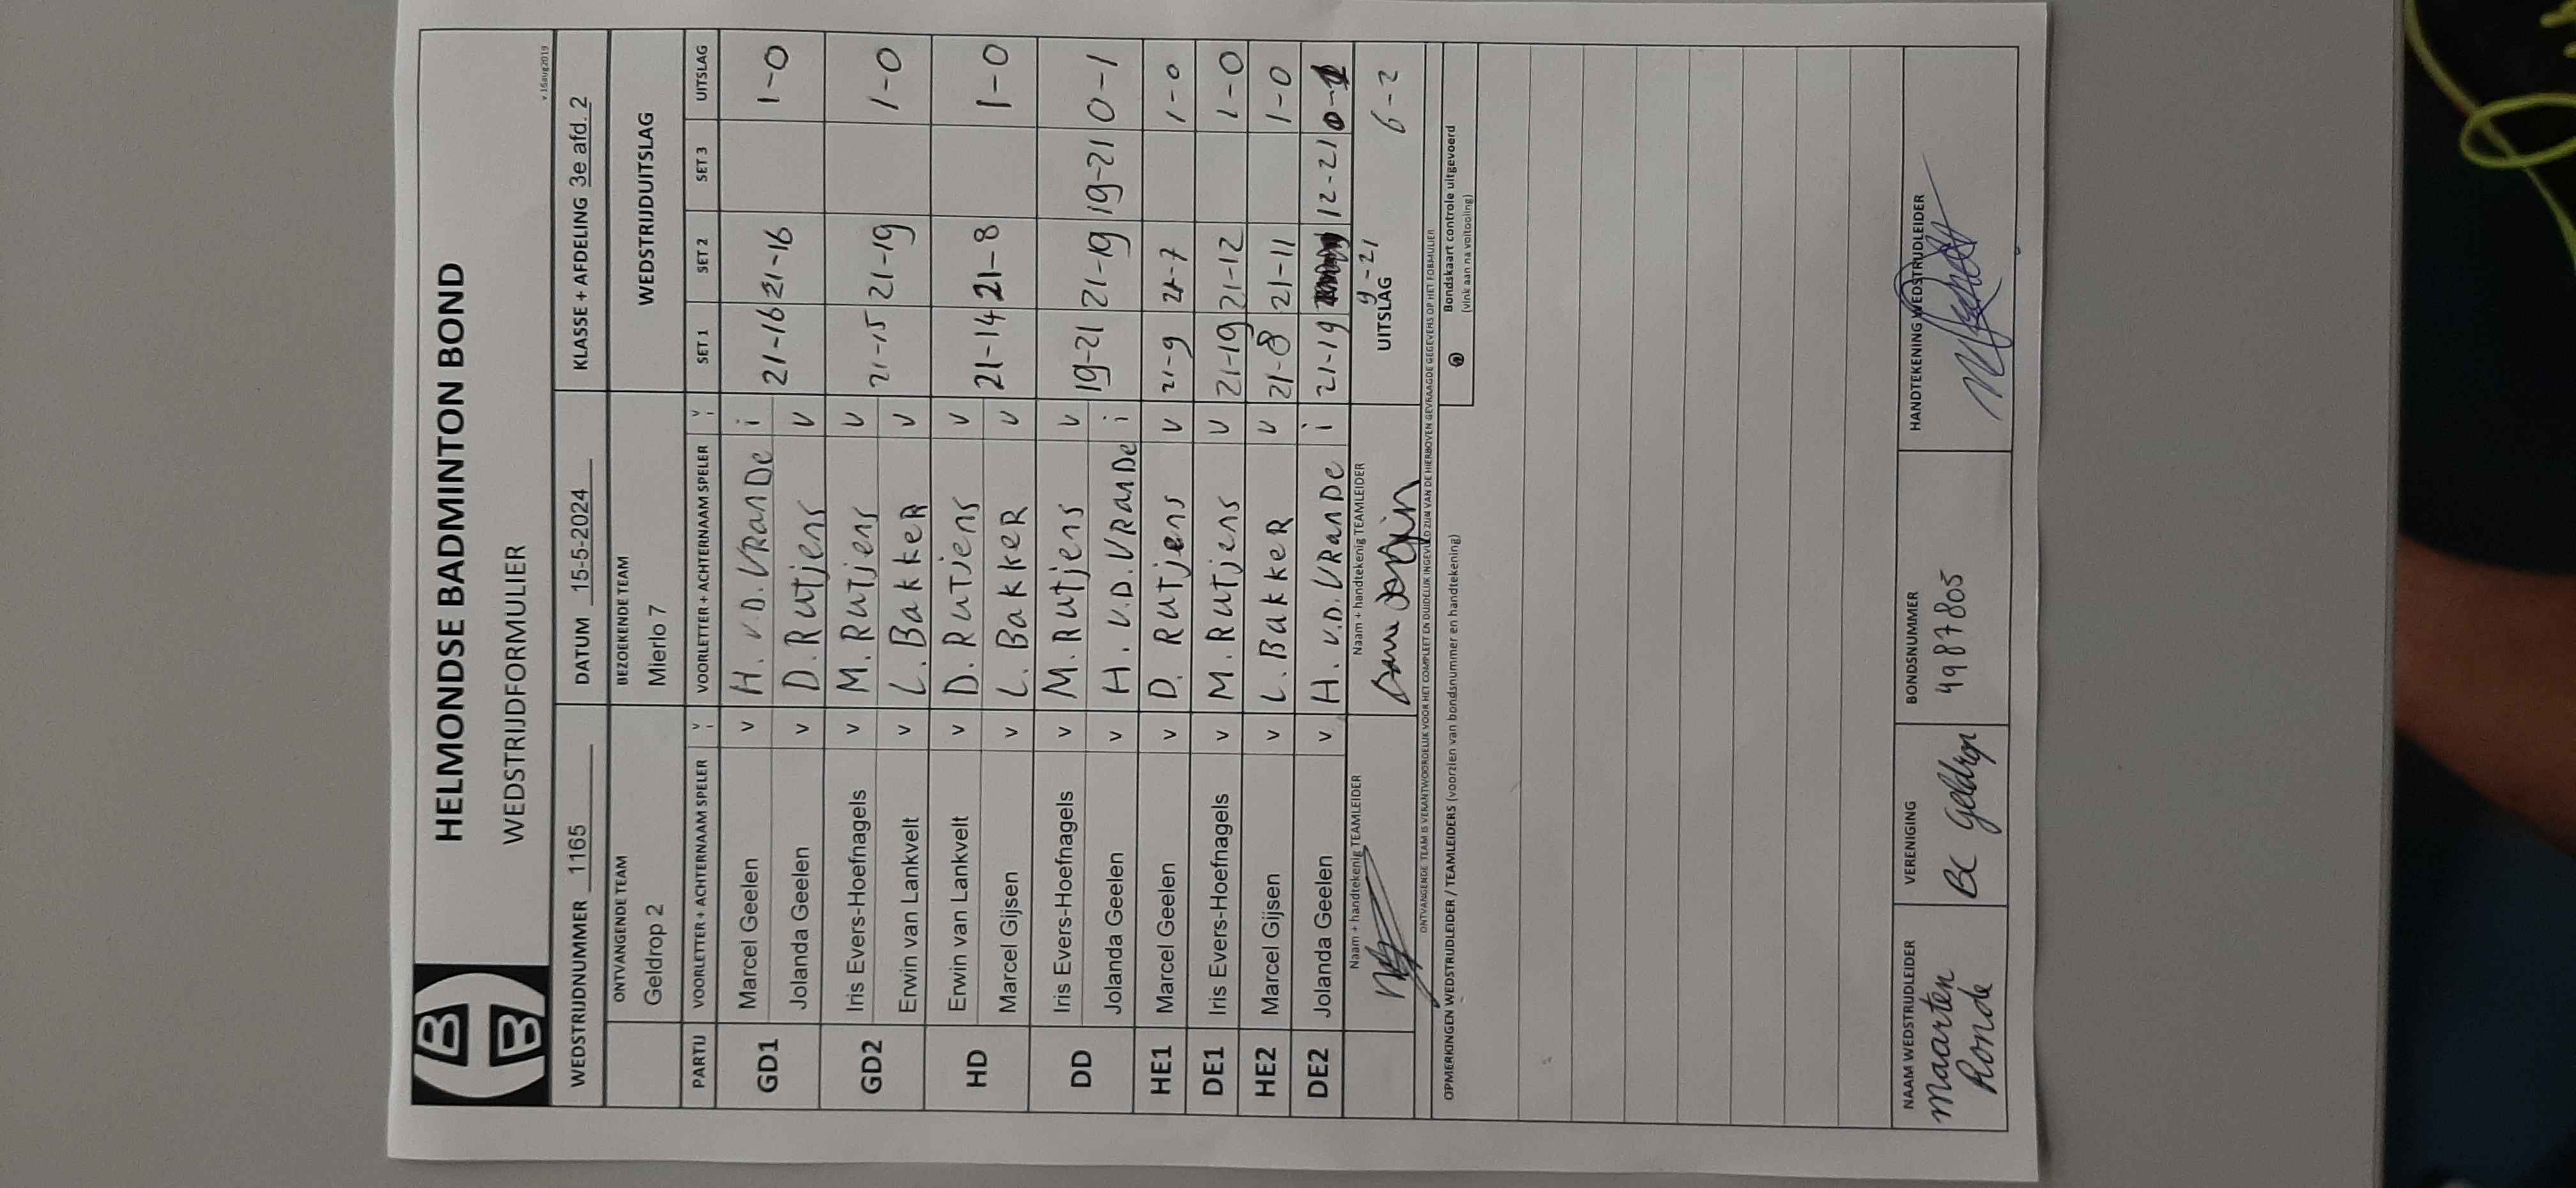 HELMONDSE BADMINTON BOND
WEDSTRIJDFORMULIER
v.16aug2019
WEDSTRIJDNUMMER 1165 DATUM 15-5-2024 KLASSE + AFDELING 3e afd. 2
ONTVANGENDE TEAM BEZOEKENDE TEAM WEDSTRIJDUITSLAG
Geldrop 2 Mierlo 7
PARTIJ VOORLETTER + ACHTERNAAM SPELER V i VOORLETTER + ACHTERNAAM SPELER V i SET 1 SET 2 SET 3 UITSLAG
GD1 Marcel Geelen v H. v.D. VRanDe i 21-16 21-16 1-0
Jolanda Geelen v D. Rutjens v
GD2 Iris Evers-Hoefnagels v M. Rutjens v 21-15 21-19 1-0
Erwin van Lankvelt v L. BakkeR v
HD Erwin van Lankvelt v D. RuTjens v 21-14 21-8 1-0
Marcel Gijsen v L. BakkeR v
DD Iris Evers-Hoefnagels v M. Rutjens v 19-21 21-19 19-21 0-1
Jolanda Geelen v H. v.D. VRanDe i
HE1 Marcel Geelen v D. Rutjens v 21-9 21-7 1-0
DE1 Iris Evers-Hoefnagels v M. Rutjens v 21-19 21-12 1-0
HE2 Marcel Gijsen v L. BakkeR v 21-8 21-11 1-0
DE2 Jolanda Geelen v H. v.D. VRanDe i 21-19 12-21 0-1
9-21
Naam + handtekenig TEAMLEIDER Naam + handtekenig TEAMLEIDER UITSLAG 6-2
ONTVANGENDE TEAM IS VERANTWOORDELIJK VOOR HET COMPLEET EN DUIDELIJK INGEVULD ZIJN VAN DE HIERBOVEN GEVRAAGDE GEGEVENS OP HET FORMULIER
OPMERKINGEN WEDSTRIJDLEIDER / TEAMLEIDERS (voorzien van bondsnummer en handtekening)
Bondskaart controle uitgevoerd
(vink aan na voltooiing)
NAAM WEDSTRIJDLEIDER VERENIGING BONDSNUMMER HANDTEKENING WEDSTRIJDLEIDER
Maarten Ronde BC Geldrop 4987805